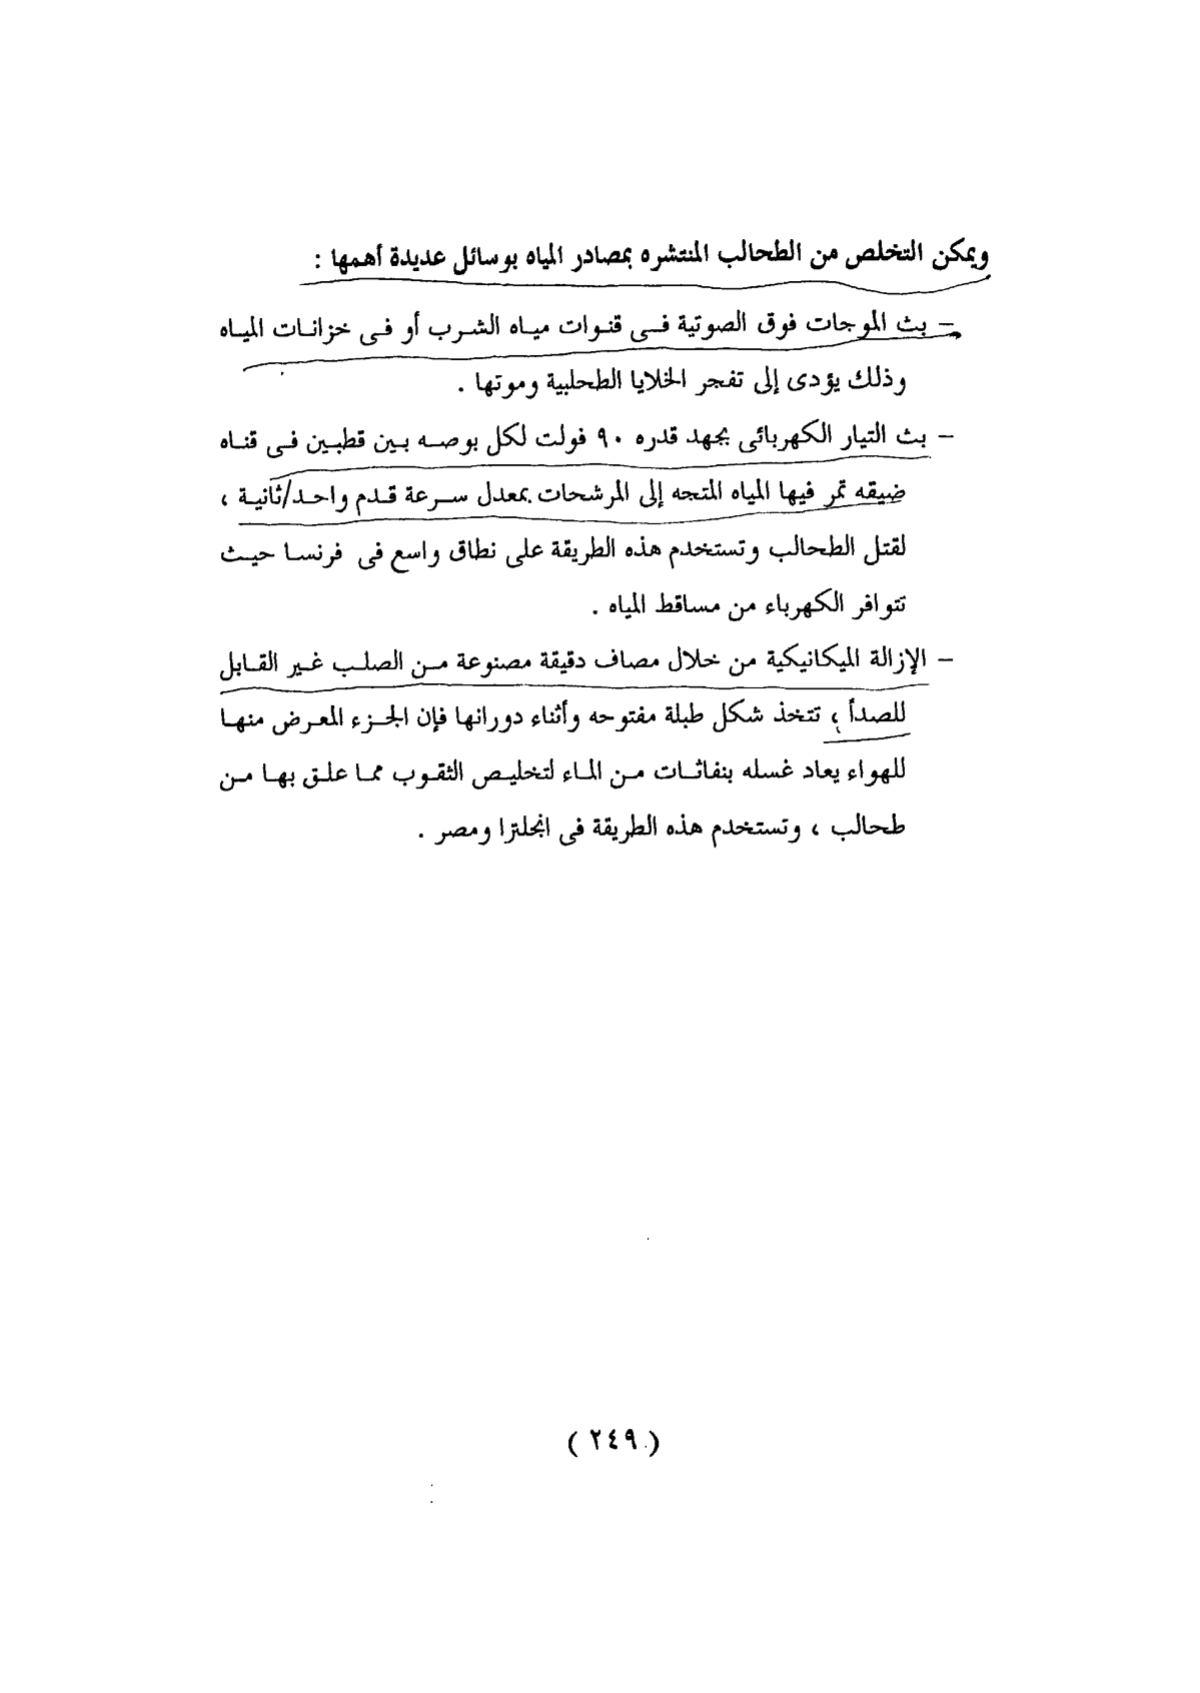 ويمكن التخلص من الطحالب المنتشره بمصادر المياه بوسائل عديدة أهمها :
– بث الموجات فوق الصوتية فى قنوات مياه الشرب أو فى خزانات المياه
وذلك يؤدى إلى تفجر الخلايا الطحلبية وموتها .
– بث التيار الكهربائى بجهد قدره ٩٠ فولت لكل بوصه بين قطبين فى قناه
ضيقه تمر فيها المياه المتجه إلى المرشحات بمعدل سرعة قدم واحد/ثانية ،
لقتل الطحالب وتستخدم هذه الطريقة على نطاق واسع فى فرنسا حيث
تتوافر الكهرباء من مساقط المياه .
– الإزالة الميكانيكية من خلال مصاف دقيقة مصنوعة من الصلب غير القابل
للصدأ ، تتخذ شكل طبلة مفتوحه وأثناء دورانها فإن الجزء المعرض منها
للهواء يعاد غسله بنفاثات من الماء لتخليص الثقوب مما علق بها من
طحالب ، وتستخدم هذه الطريقة فى انجلترا ومصر .
( ٢٤٩ )